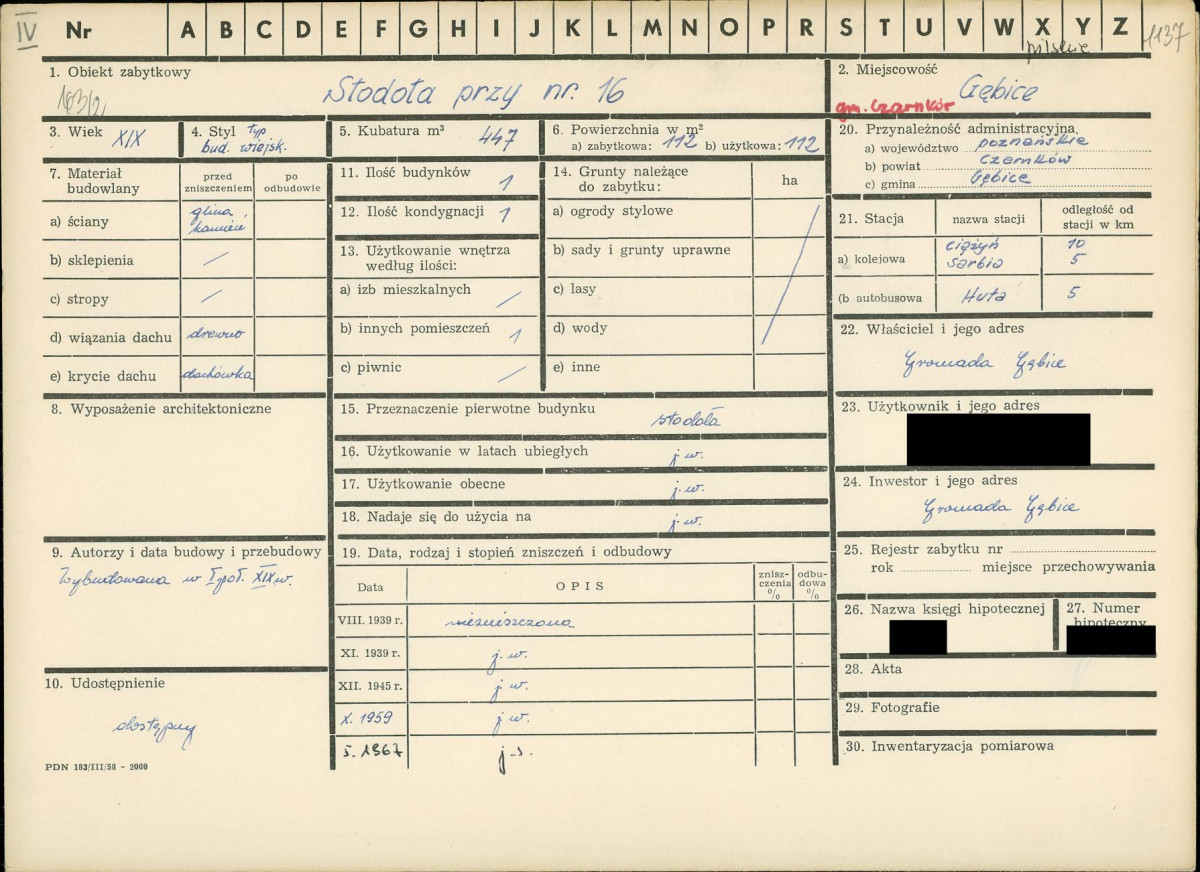 IV
Nr A B C D E F G H I J K L M N O P R S T U V W X Y Z
pilskie
1137
1. Obiekt zabytkowy
Stodoła przy nr. 16
2. Miejscowość
Gębice
gm. Czarnków
3. Wiek XIX
4. Styl typ
bud. wiejsk.
5. Kubatura m³ 447
6. Powierzchnia w m²
a) zabytkowa: 112 b) użytkowa: 112
20. Przynależność administracyjna
a) województwo poznańskie
b) powiat Czarnków
c) gmina Gębice
7. Materiał budowlany
przed zniszczeniem
po odbudowie
a) ściany glina, kamień
b) sklepienia /
c) stropy /
d) wiązania dachu drewno
e) krycie dachu dachówka
11. Ilość budynków 1
12. Ilość kondygnacji 1
13. Użytkowanie wnętrza
według ilości:
a) izb mieszkalnych /
b) innych pomieszczeń 1
c) piwnic /
14. Grunty należące
do zabytku:
ha
a) ogrody stylowe
b) sady i grunty uprawne
c) lasy
d) wody
e) inne
21. Stacja
nazwa stacji
odległość od
stacji w km
a) kolejowa
Ciążyń 10
Sarbia 5
(b autobusowa Huta 5
22. Właściciel i jego adres
Gromada Gębice
8. Wyposażenie architektoniczne
15. Przeznaczenie pierwotne budynku stodoła
16. Użytkowanie w latach ubiegłych j.w.
17. Użytkowanie obecne j.w.
18. Nadaje się do użycia na j.w.
23. Użytkownik i jego adres
24. Inwestor i jego adres
Gromada Gębice
9. Autorzy i data budowy i przebudowy
Wybudowana w I poł. XIX w.
19. Data, rodzaj i stopień zniszczeń i odbudowy
Data
OPIS
znisz-
czenia
%
odbu-
dowa
%
VIII. 1939 r. niezniszczona
XI. 1939 r. j.w.
XII. 1945 r. j.w.
X. 1959 j.w.
5. 1967 j.w.
25. Rejestr zabytku nr
rok miejsce przechowywania
26. Nazwa księgi hipotecznej
27. Numer
hipoteczny
28. Akta
29. Fotografie
30. Inwentaryzacja pomiarowa
10. Udostępnienie
dostępny
PDN 183/III/58 - 2000